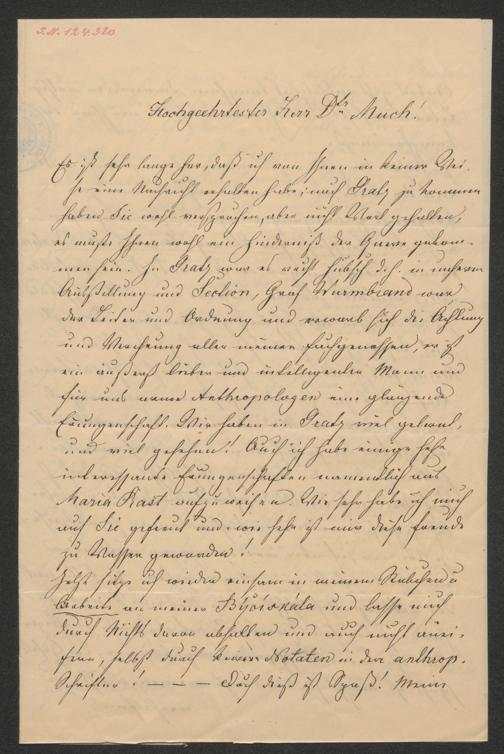 I.N. 124.320
Hochgeehrtester Herr Dtr Much!
Es ist sehr lange her, daß ich von Ihnen in keiner Wei-
se eine Nachricht erhalten habe; nach Gratz zu kommen
haben Sie wohl versprochen, aber nicht Wort gehalten,
es mußte Ihnen wohl ein Hinderniß der Quere gekom-
men sein. In Gratz war es recht hübsch d.h. in unserer
Aufstellung und Section, Graf Wurmbrand war
der Leiter und Ordnung und erwarb sich die Achtung
und Verehrung aller meiner Fachgenossen, er ist
ein äußerst lieber und intelligenter Mann und
für uns arme Anthropologen eine glänzende
Errungenschaft. Wir haben in Gratz viel gelernt,
und viel gesehen! Auch ich habe einige sehr
interessante Errungenschaften namentlich aus
Maria Rast aufzuweisen. Wie sehr habe ich mich
auf Sie gefreut und wie sehr ist mir diese Freude
zu Wasser geworden!
Jetzt sitze ich wieder einsam in meinem Stübchen u
arbeite an meiner Býčiskála und lasse mich
durch Nichts davon abhalten und auch nicht
selbst durch keine Notaten in den anthrop.
Schriften! — — — Doch dieß ist Spaß! Meine